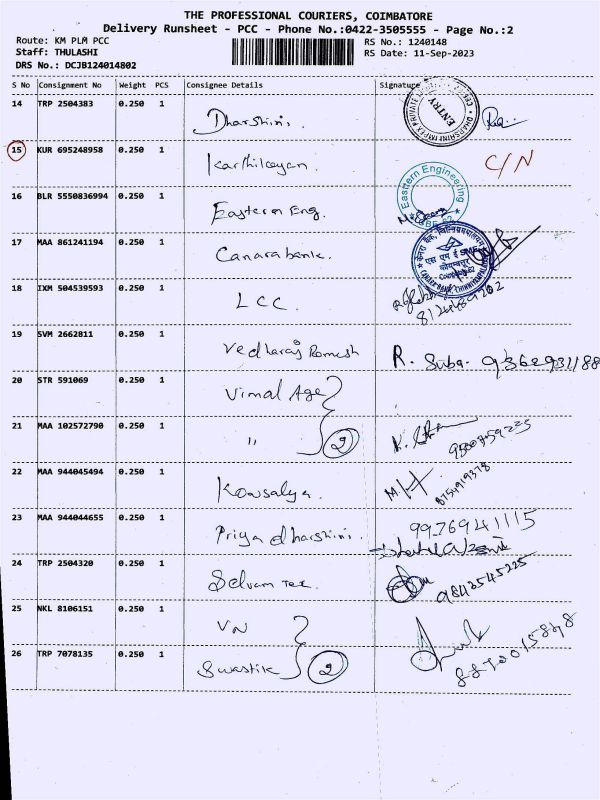 THE PROFESSIONAL COURIERS, COIMBATORE
Delivery Runsheet - PCC - Phone No.:0422-3505555 - Page No.:2
Route: KM PLM PCC
RS No.: 1240148
Staff: THULASHI
RS Date: 11-Sep-2023
DRS No.: DCJB124014802
S No Consignment No Weight PCS Consignee Details Signature
14 TRP 2504383 0.250 1 Dharshini. ENTRY
15 KUR 695248958 0.250 1 Karthikeyan. C/N
16 BLR 5550836994 0.250 1 Eastern Eng. Eastern Engineering
17 MAA 861241194 0.250 1 Canara bank.
18 IXM 504539593 0.250 1 LCC
19 SVM 2662811 0.250 1 Vedharaj Romesh R. Suba. 9362931188
20 STR 591069 0.250 1 Vimal Age
21 MAA 102572790 0.250 1 " 2
22 MAA 944045494 0.250 1 Kowsalya.
23 MAA 944044655 0.250 1 Priya dharshini. 9976941115
24 TRP 2504320 0.250 1 Selvam Tex. 9842545225
25 NKL 8106151 0.250 1 VN
26 TRP 7078135 0.250 1 Swastik 2